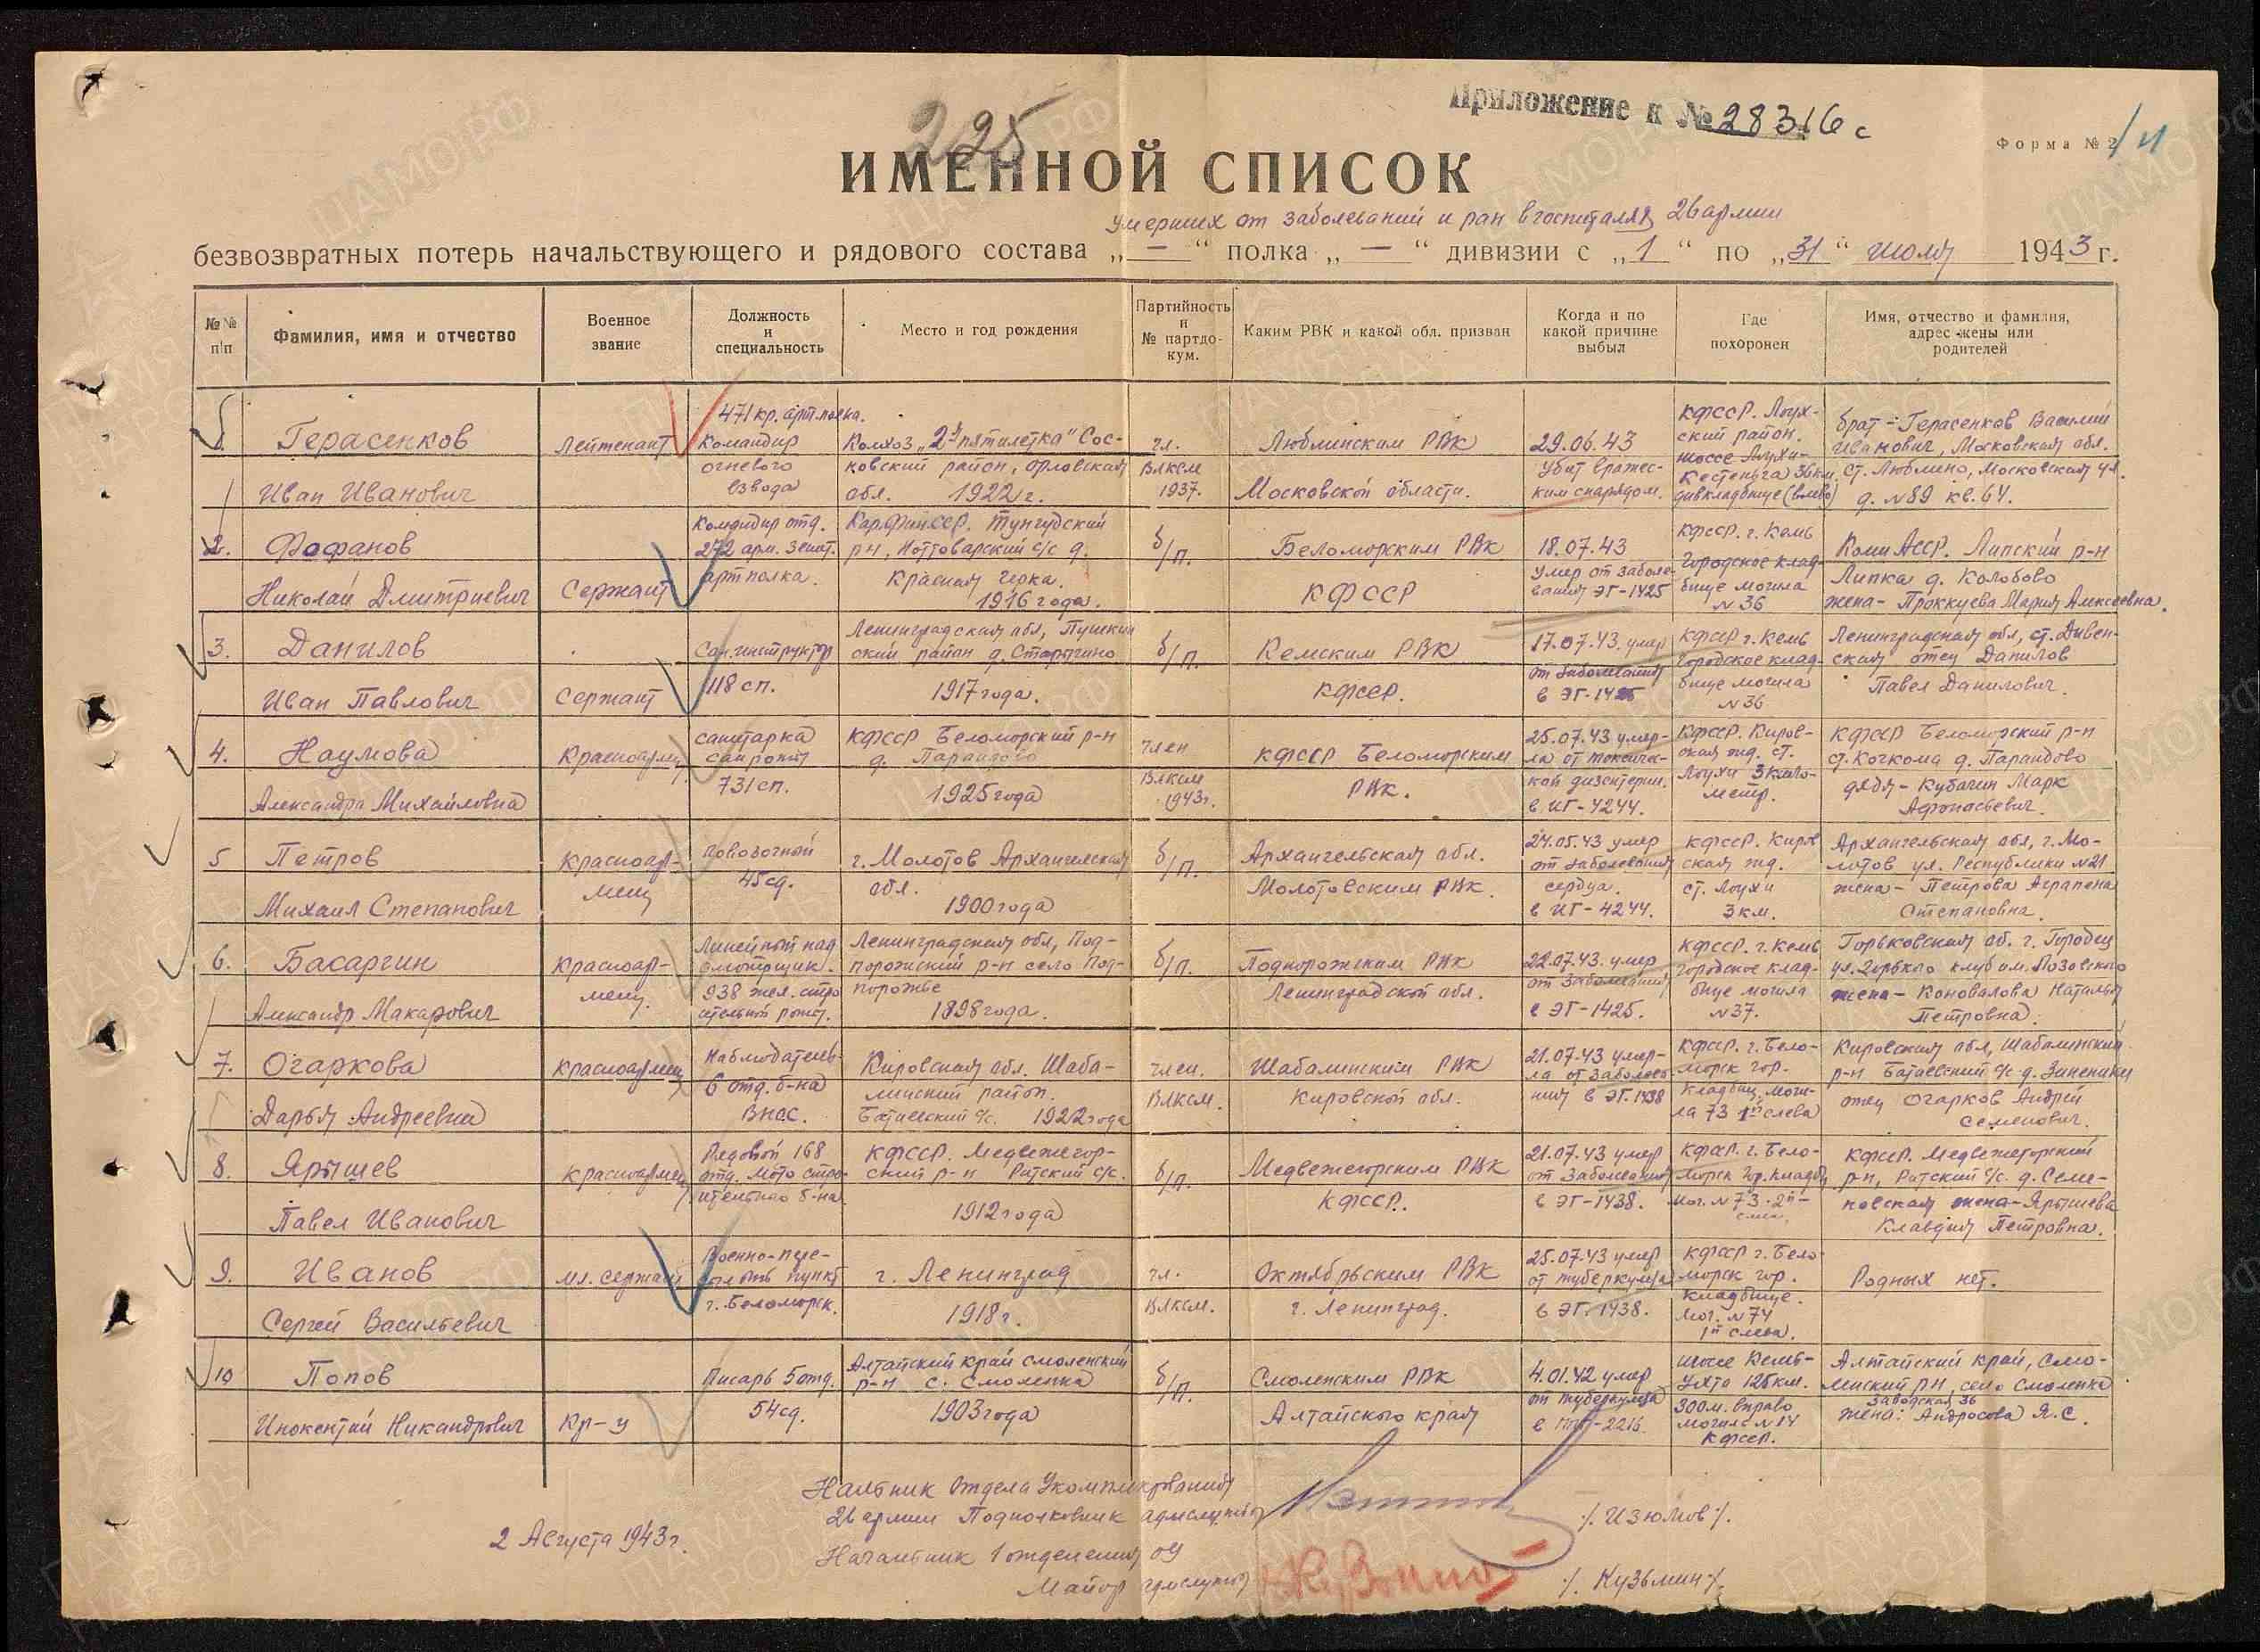 225
Приложение к № 28316с
Форма № 2/н
ИМЕННОЙ СПИСОК
умерших от заболеваний и ран в госпиталях 26 армии
безвозвратных потерь начальствующего и рядового состава „ — “ полка „ — “ дивизии с „ 1 “ по „ 31 “ июля 1943 г.
№№ п/п
Фамилия, имя и отчество
Военное звание
Должность и специальность
Место и год рождения
Партийность и № партдокум.
Каким РВК и какой обл. призван
Когда и по какой причине выбыл
Где похоронен
Имя, отчество и фамилия, адрес жены или родителей
1.
Герасенков
Иван Иванович
Лейтенант
471 кр. арт. полка.
Командир
огневого
взвода
Колхоз „2я пятилетка" Сос-
ковский район, Орловская
обл. 1922 г.
чл.
ВЛКСМ
1937.
Люблинским РВК
Московской области.
29.06.43
Убит вражес-
ким снарядом.
КФССР. Лоух-
ский район.
шоссе Лоухи-
Кестеньга 36 км.
дивкладбище (влево)
брат - Герасенков Василий
Иванович, Московская обл.
ст. Люблино, Московская ул.
д. №89 кв. 64.
2.
Фофанов
Николай Дмитриевич
Сержант
Командир отд.
272 арм. зенит.
артполка.
Кар.Фин.ССР. Тунгудский
р-н, с/с д.
Красная горка.
1916 года.
б/п.
Беломорским РВК
КФССР
18.07.43
Умер от заболе-
вания ЭГ-1425
КФССР. г. Кемь
Городское клад-
бище могила
№ 36
Коми АССР. Липский р-н
Липка д. Колобово
жена - Проккуева Мария Алексеевна.
3.
Данилов
Иван Павлович
Сержант
Сан.инструктор
118 сп.
Ленинградская обл, Пушкин
ский район д.
1917 года.
б/п.
Кемским РВК
КФССР.
17.07.43. умер
от заболевания
в ЭГ-1425
КФССР г. Кемь
Городское клад-
бище могила
№ 36
Ленинградская обл, ст. Дивен-
ская отец Данилов
Павел Данилович.
4.
Наумова
Александра Михайловна
Красноармеец
санитарка
санроты
731 сп.
КФССР Беломорский р-н
д. Парандово
1925 года
член
ВЛКСМ
1943 г.
КФССР Беломорским
РВК.
25.07.43 умер-
ла от токсиче-
кой дизентерии.
в ИГ-4244.
КФССР. Киров-
ская жд. ст.
Лоухи 3 кило-
метр.
КФССР Беломорский р-н
ст. Кочкома д. Парандово
дядя - Кубачин Марк
Афонасьевич.
5
Петров
Михаил Степанович
Красноар-
меец
повозочный
45 сд.
г. Молотов Архангельская
обл.
1900 года
б/п.
Архангельская обл.
Молотовским РВК.
24.05.43 умер
от заболевания
сердца.
в ИГ-4244.
КФССР. Киров
ская жд.
ст. Лоухи
3 км.
Архангельская обл, г. Мо-
лотов ул. Республики №21
жена - Петрова Аграпена
Степановна.
6.
Басаргин
Александр Макарович
Красноар-
меец.
Линейный над
смотрщик.
938 жел. стро
ительной роты.
Ленинградская обл, Под-
порожский р-н село Под-
порожье
1898 года.
б/п.
Подпорожским РВК
Ленинградской обл.
22.07.43. умер
от заболевания
в ЭГ-1425.
КФССР. г. Кемь
городское клад-
бище могила
№37.
Горьковская об. г. Городец
ул. Горького клуб им. Лозовского
жена - Коновалова Наталья
Петровна.
7.
Огаркова
Дарья Андреевна
Красноармеец
Наблюдатель
6 отд. б-на
ВНОС.
Кировская обл. Шаба-
линский район.
Батаевский с/с. 1922 года
член.
ВЛКСМ.
Шабалинским РВК
Кировской обл.
21.07.43 умер-
ла от заболева
ния в ЭГ. 1438
КФССР. г. Бело-
морск гор.
кладбищ. моги-
ла 73 1й слева
Кировская обл, Шабалинский
р-н Батаевский с/с д. Зиненки
отец Огарков Андрей
Семенович.
8.
Ярышев
Павел Иванович
Красноармеец
Рядовой 168
отд. мото стро-
ительного б-на
КФССР. Медвежегор-
ский р-н Ратский с/с.
1912 года
б/п.
Медвежегорским РВК
КФССР.
21.07.43 умер
от заболевания
в ЭГ-1438.
КФССР. г. Бело-
морск гор. кладби
мог. №73. 2й-
слева
КФССР. Медвежегорский
р-н, Ратский с/с. д. Семе-
новская жена - Ярышева
Клавдия Петровна.
9.
Иванов
Сергей Васильевич
мл. сержант
Военно-пере-
сыльный пункт
г. Беломорск.
г. Ленинград
1918 г.
чл.
ВЛКСМ.
Октябрьским РВК
г. Ленинград.
25.07.43 умер
от туберкулеза
в ЭГ. 1438.
КФССР г. Бело-
морск гор.
кладбище.
Мог. №74
1й слева.
Родных нет.
10
Попов
Инокентий Никандрович
Кр-ц
Писарь 5 отд.
54 сд.
Алтайский край Смоленский
р-н с. Смоленка
1903 года
б/п.
Смоленским РВК
Алтайского края
4.01.42 умер
от туберкулеза
в -2216.
шоссе Кемь-
Ухта 125 км.
300 м. вправо
могила №14
КФССР.
Алтайский край, Смо-
ленский р-н, село Смоленка
Заводская 36
жена: Андросова Я.С.
Начальник Отдела Укомплектования
26 армии Подполковник адмслужбы
/. Изюмов /.
2 Августа 1943 г.
Начальник 1 отделения ОУ
Майор адмслужбы
/. Кузьмин /.